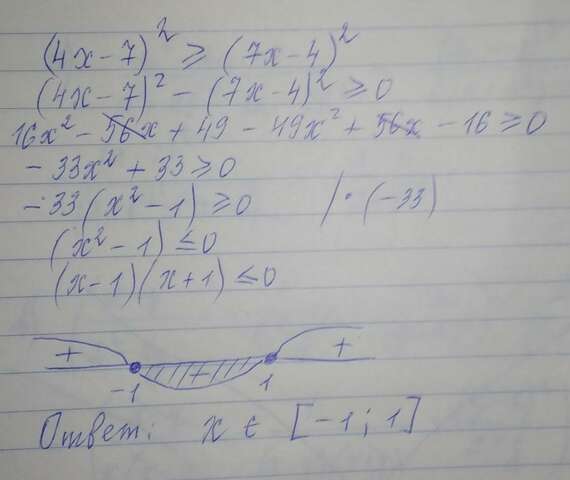 (4x-7)² ≥ (7x-4)²
(4x-7)² - (7x-4)² ≥ 0
16x² - 56x + 49 - 49x² + 56x - 16 ≥ 0
-33x² + 33 ≥ 0
-33(x² - 1) ≥ 0 /·(-33)
(x² - 1) ≤ 0
(x-1)(x+1) ≤ 0
+ + +
-1 1
Ответ: x ∈ [-1; 1]